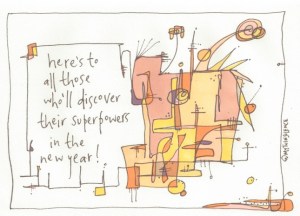 here's to
all those
who'll discover
their superpowers
in the
new year!